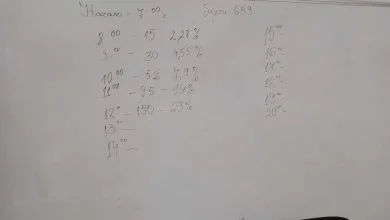 Начало - 7 00, Брой 659
8 00 - 15 2,28%
9 00 - 30 4,55%
10 00 - 52 7,9%
11 00 - 95 - 14%
12 00 - 150 - 23%
13 00 -
14 00 -
15 00 -
16 00 -
17 00 -
18 00 -
19 00 -
20 00 -